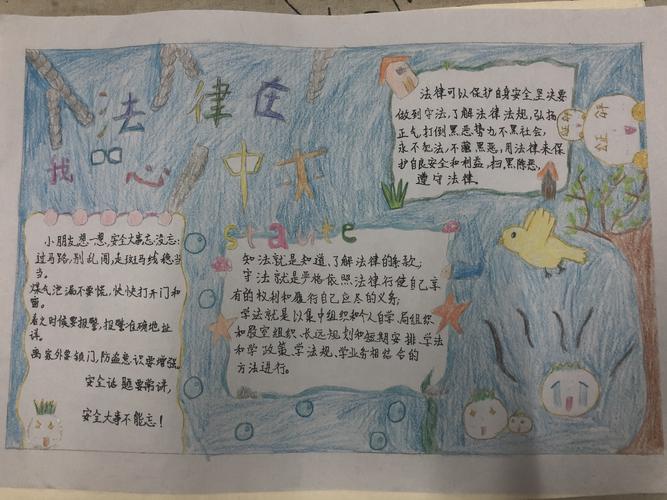 法律在
我 心中
staute
法律可以保护自身安全坚决要
做到守法,了解法律法规,弘扬
正气,打倒黑恶势也不黑社会,
永不犯法,不藏黑恶,用法律来保
护自良安全和利益,扫黑除恶,
遵守法律。
证 件
证 件
小朋友想一想,安全大事忘没忘:
过马路,别乱闯,走斑马线稳当
当。
煤气泄漏不要慌,快快打开门和
窗。
着火时候要报警,报警准确地址
详。
离家外要锁门,防盗意识要增强。
安全话题要常讲,
安全大事不能忘!
知法就是知道、了解法律的条款;
守法就是严格依照法律行使自己享
有的权利和履行自己应尽的义务;
学法就是以集中组织和个人自学、局组织
和股室组织、长远规划和短期安排、学法
和学政策、学法规、学业务相结合的
方法进行。